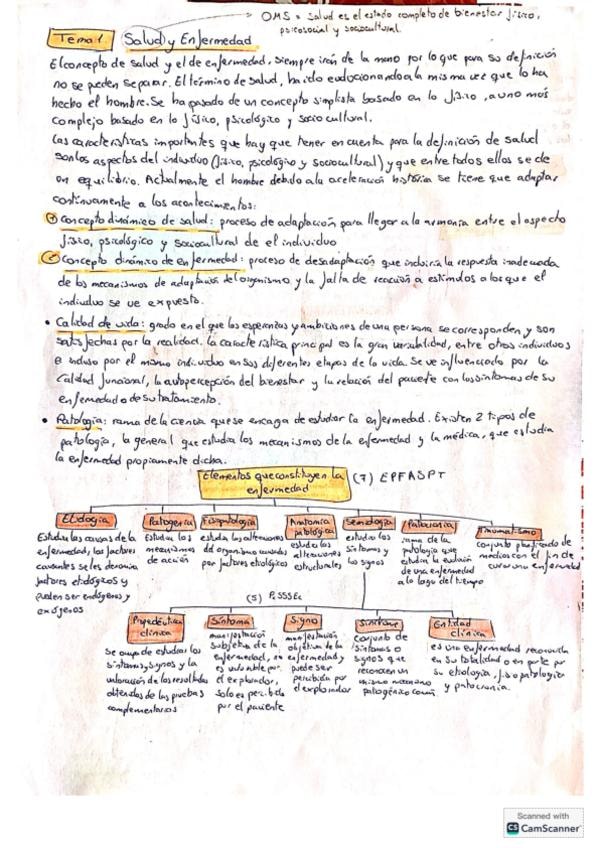 OMS = Salud es el estado completo de bienestar físico,
psicosocial y sociocultural.
Tema 1 Salud y Enfermedad
El concepto de salud y el de enfermedad, siempre irán de la mano por lo que para su definición
no se pueden separar. El término de salud, ha ido evolucionando a la misma vez que lo ha
hecho el hombre. Se ha pasado de un concepto simplista basado en lo físico, a uno más
complejo basado en lo físico, psicológico y socio cultural.
Las características importantes que hay que tener en cuenta para la definición de salud
son los aspectos del individuo (físico, psicológico y sociocultural) y que entre todos ellos se de
un equilibrio. Actualmente el hombre debido a la aceleración histórica se tiene que adaptar
continuamente a los acontecimentos:
1 Concepto dinámico de salud: proceso de adaptación para llegar a la armonía entre el aspecto
físico, psicológico y sociocultural de el individuo
2 Concepto dinámico de enfermedad: proceso de desadaptación que incluiría la respuesta inadecuada
de los mecanismos de adaptación del organismo y la falta de reacción a estímulos a los que el
individuo se ve expuesto.
• Calidad de vida: grado en el que las esperanzas y ambiciones de una persona se corresponden y son
satisfechas por la realidad. la característica principal es la gran variabilidad, entre otros individuos
e incluso por el mismo individuo en sus diferentes etapas de la vida. Se ve influenciado por la
Calidad funcional, la autopercepción del bienestar y la relación del paciente con los síntomas de su
enfermedad o de su tratamiento.
• Patología: rama de la ciencia que se encaga de estudiar la enfermedad. Existen 2 tipos de
patología, la general que estudia los mecanismos de la enfermedad y la médica, que estudia
la enfermedad propiamente dicha.
Elementos que constituyen la
enfermedad
(7) EPFASPT
Etiología
Estudia las causas de la
enfermedad, los factores
causantes se les denomina
factores etiológicos y
pueden ser endógenos y
exógenos
Patogenia
Estudia los
mecanismos
de acción
Fisiopatología
estudia las alteraciones
del organismo causadas
por factores etiológicos
Anatomía
patológica
estudia las
alteraciones
estructurales
Semiología
estudia los
síntomas y
los signos
Patocronia
rama de la
patología que
estudia la evolución
de una enfermedad
a lo lago del tiempo
conjunto de
medios con el fin de
curar una enfermedad
(5) PSSSEc
Propedéutica
clínica
Se ocupa de estudiar los
síntomas, signos y la
valoración de los resultados
obtenidos de las pruebas
complementarios
Síntoma
manifestación
subjetiva de la
enfermedad, no
es valorable por
el explorador,
solo es percibida
por el paciente
Signo
manifestación
objetiva de la
enfermedad y
puede ser
percibida por
el explorador
Síndrome
conjunto de
síntomas o
signos que
reconocen un
mismo mecanismo
patogénico común
Entidad
clínica
es una enfermedad reconocida
en su totalidad o en parte por
su etiología, fisiopatología
y patocronia.
Scanned with
CS CamScanner